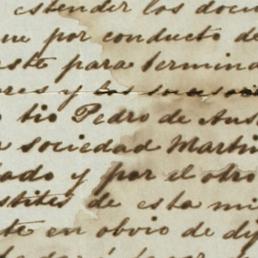 estender los docu
ue por conducto de
este para termina
ores y los
tio Pedro de Aus
sociedad Martin
lado y por el otro
stites de esta mi
te en obvio de di